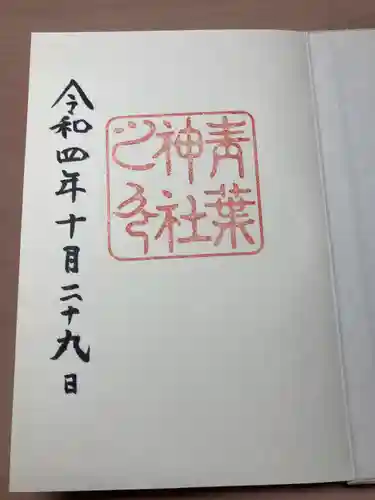 青葉
神社
之印
令和四年十月二十九日